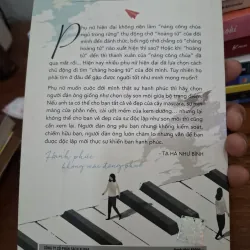 Phụ nữ hiện đại không nên làm "nàng công chúa
ngủ trong rừng" thụ động chờ "hoàng tử" của đời
mình đến đánh thức, bởi ngộ nhỡ chàng
hoàng tử" nào xuất hiện thì sao? Hoặc khi "hoàng
tử" đến thì thanh xuân của "nàng công chúa" đã
qua mất rồi... Thiện nay nhiều phụ nữ hiện đại đã lựa chọn cách
chủ động đi tìm "chàng hoàng tử" của đời mình. Tuy nhiên họ
phải tìm ở đâu để gặp được người tốt như mình mong muốn?
Phụ nữ muốn cuộc đời mình thật sự hạnh phúc thì hãy chọn
người đàn ông giống như chọn cây son môi giữa bộ trang điểm.
Nếu anh ta có thể cho bạn tất cả vẻ đẹp của cây mascara, sự
màng của phấn nền, tỏa sát mềm của kem dưỡng... nhưng lại
không thể cho bạn vẻ đẹp của sự độc lập như son môi thì cũng
cần xem lại. Người đàn ông yêu bạn nhưng không kiểm soát,
chiếm hữu bạn, người đàn ông luôn chăm lo nhưng vẫn để bạn
được độc lập mới thực sự khiến bạn hạnh phúc.
TẠ HÀ NHƯ BÌNH
Hạnh phúc
không nào đóng phí